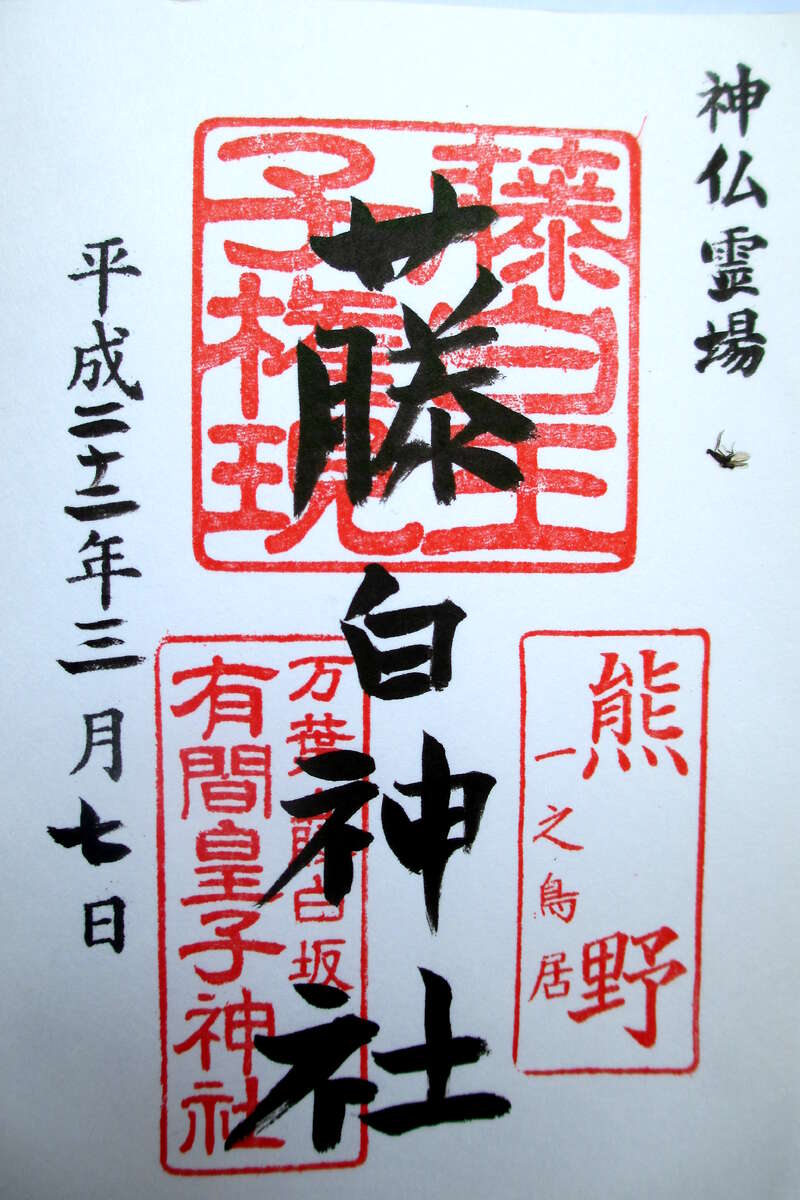 神仏霊場
藤白王
子権現
藤白神社
熊野
一之鳥居
万葉 藤白坂
有間皇子神社
平成二十二年三月七日